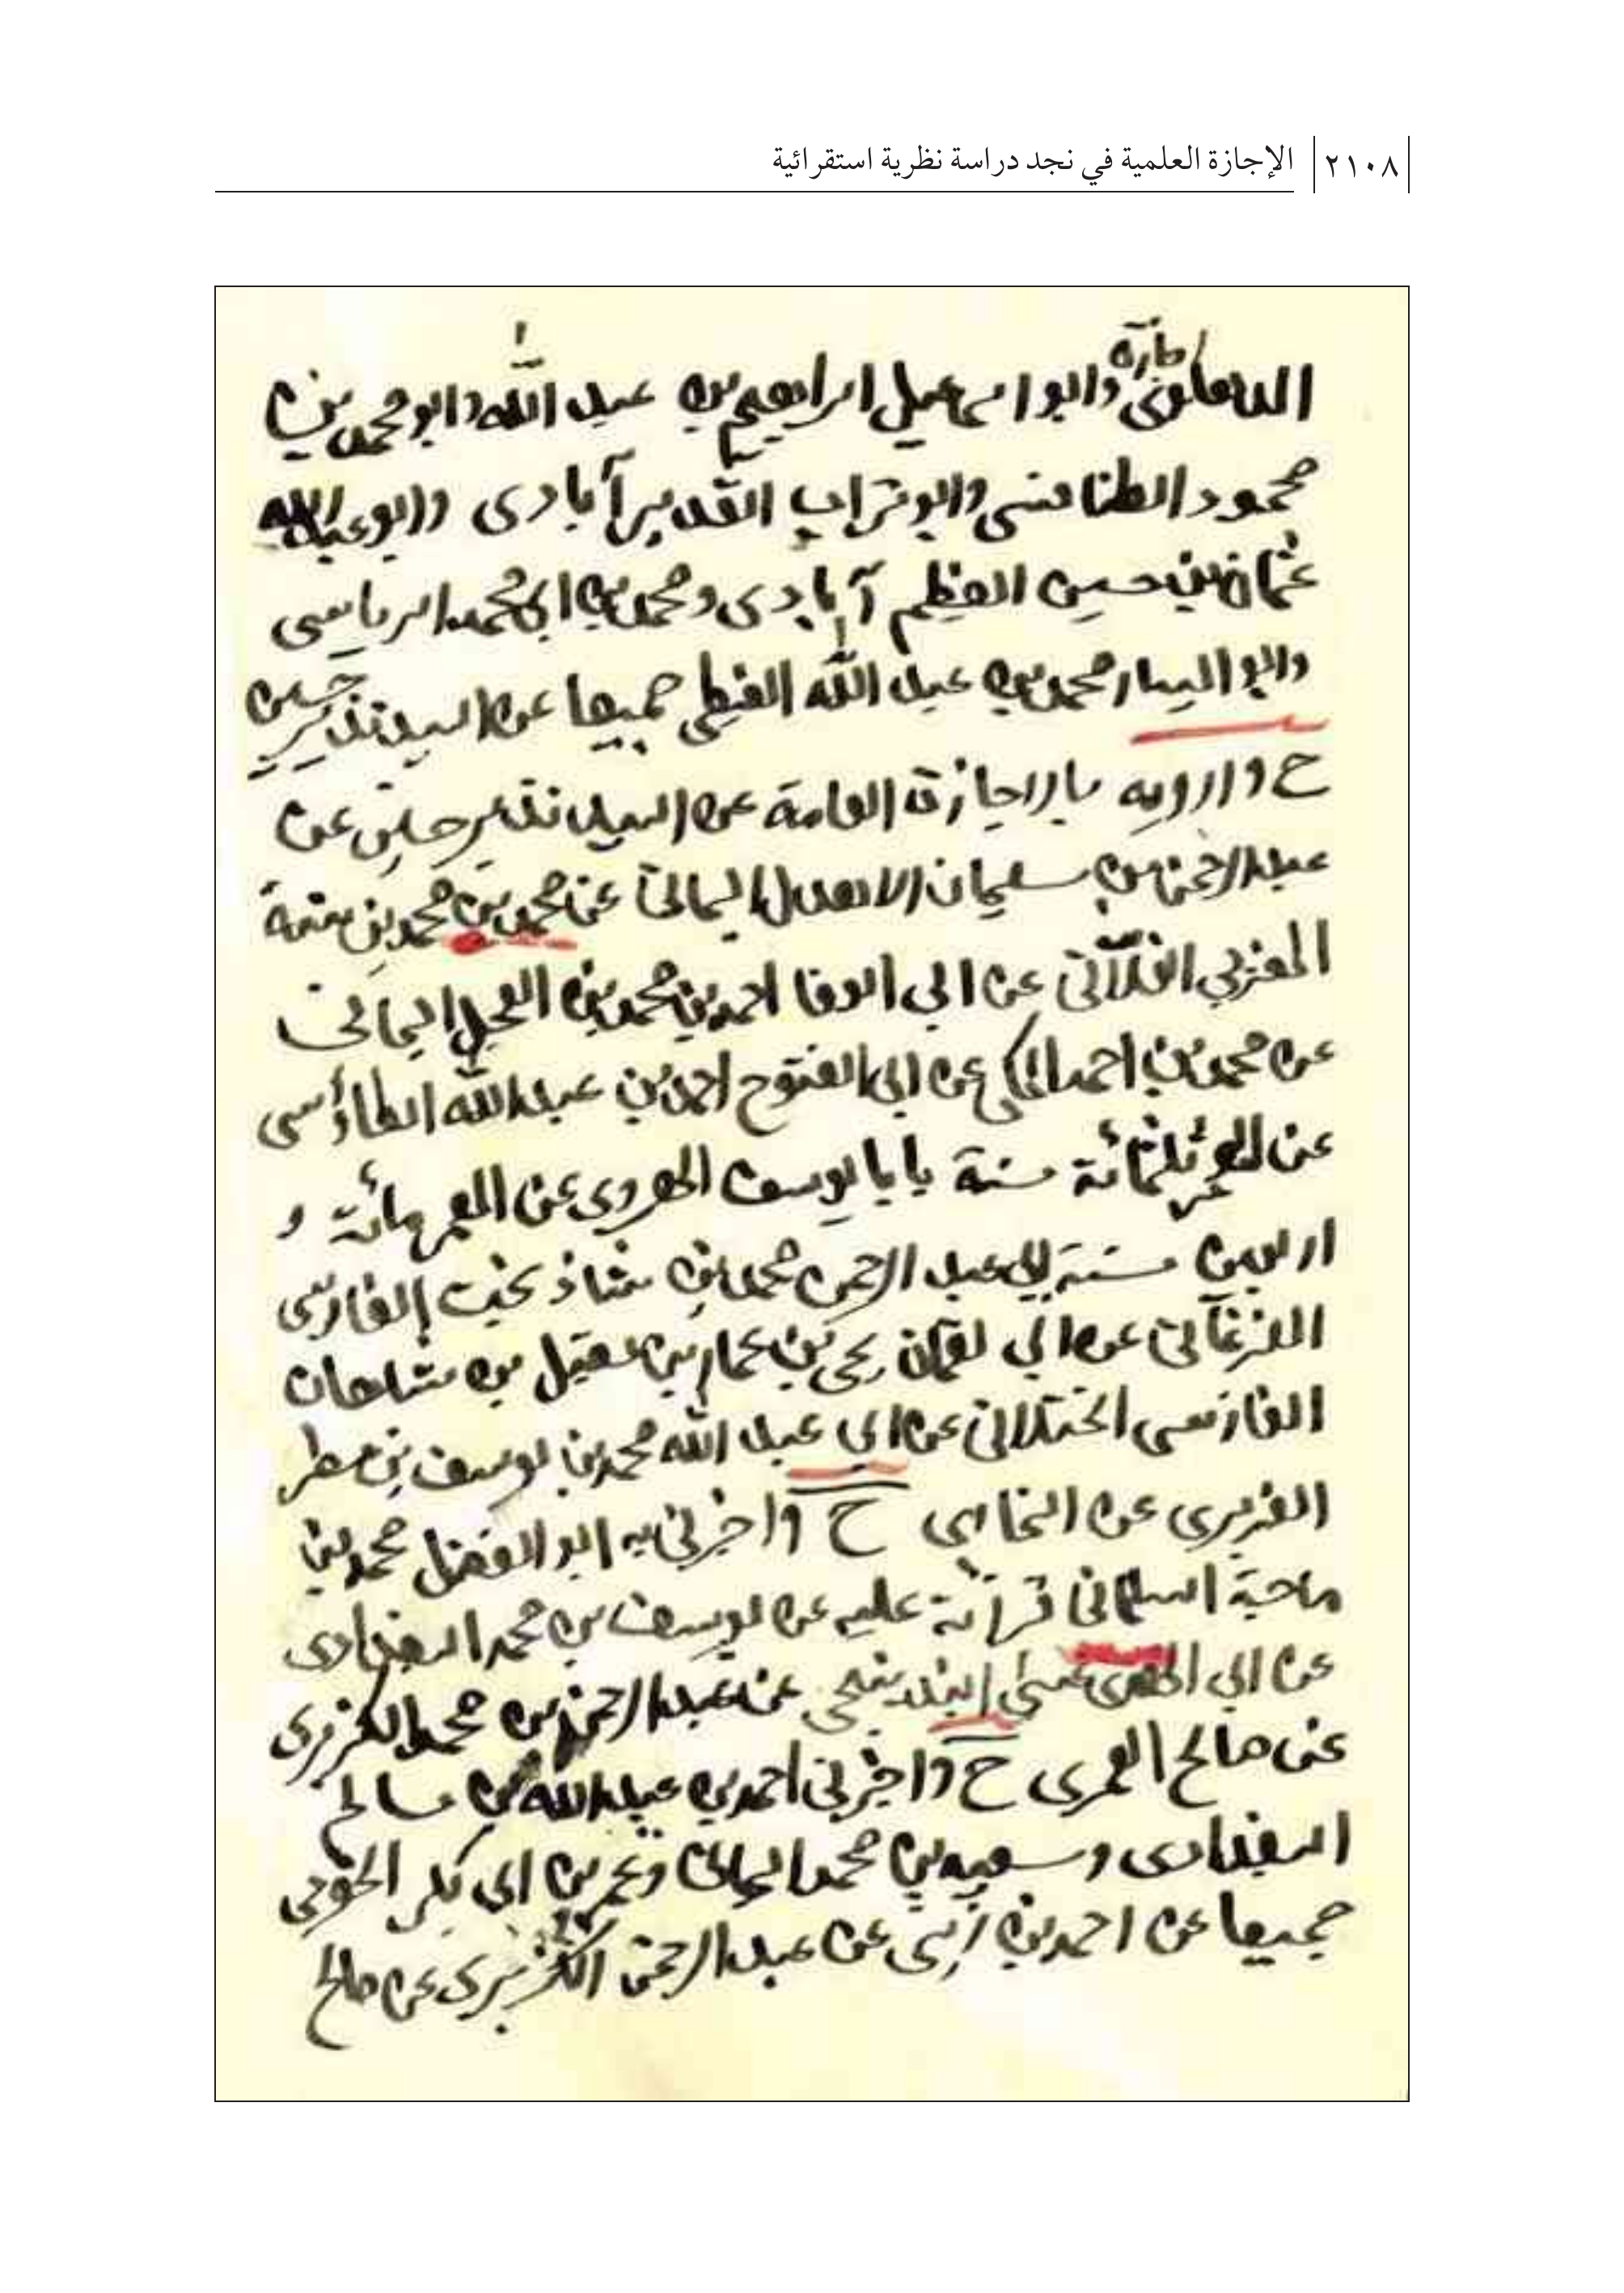 ٢١٠٨ الإجازة العلمية في نجد دراسة نظرية استقرائية
وابو اسماعيل ابراهيم بن عبد الله وابو محمد بن
محمود الطنافسى وابو تراب القدير آبادى وابو عبد الله
عثمان بن حسين العظيم آبادى ومحمد بن ابى محمد الرياسى
وابو اليسار محمد بن عبد الله الغيطى جميعا عن السيد نذير حسين
ح وارويه بالاجازة العامة عن السيد نذير حسين عن
عبد الرحمن بن سليمان الاهدل اليمانى عن محمد بن محمد بن سنة
المغربي الفلّانى عن ابي الوفا احمد بن محمد بن العجل اليمانى
عن محمد بن احمد المكى عن ابى الفتوح احمد بن عبد الله الطاؤسى
عن المعمر ثلثمائة سنة بابا يوسف الهروى عن المعمر مائة و
اربعين سنة ابي عبد الرحمن محمد بن شاذ بخت الفارسى
الفرغانى عن ابي لقمان يحيى بن عمار بن مقبل بن شاهان
الفارسى الختلانى عن ابي عبد الله محمد بن يوسف بن مطر
الفربرى عن البخارى ح واخبرنى به ابو الفضل محمد بن
قرائة عليه عن يوسف بن محمد البغدادى
عن ابي الهدى عيسى البندنيجى عن عبد الرحمن بن محمد الكزبرى
عن صالح العمرى ح واخبرنى احمد بن عبد الله بن سالم
البغدادى وسعيد بن محمد اليمانى وعمر بن ابى بكر الخوجى
جميعا عن احمد بن زينى عن عبد الرحمن الكزبرى عن صالح